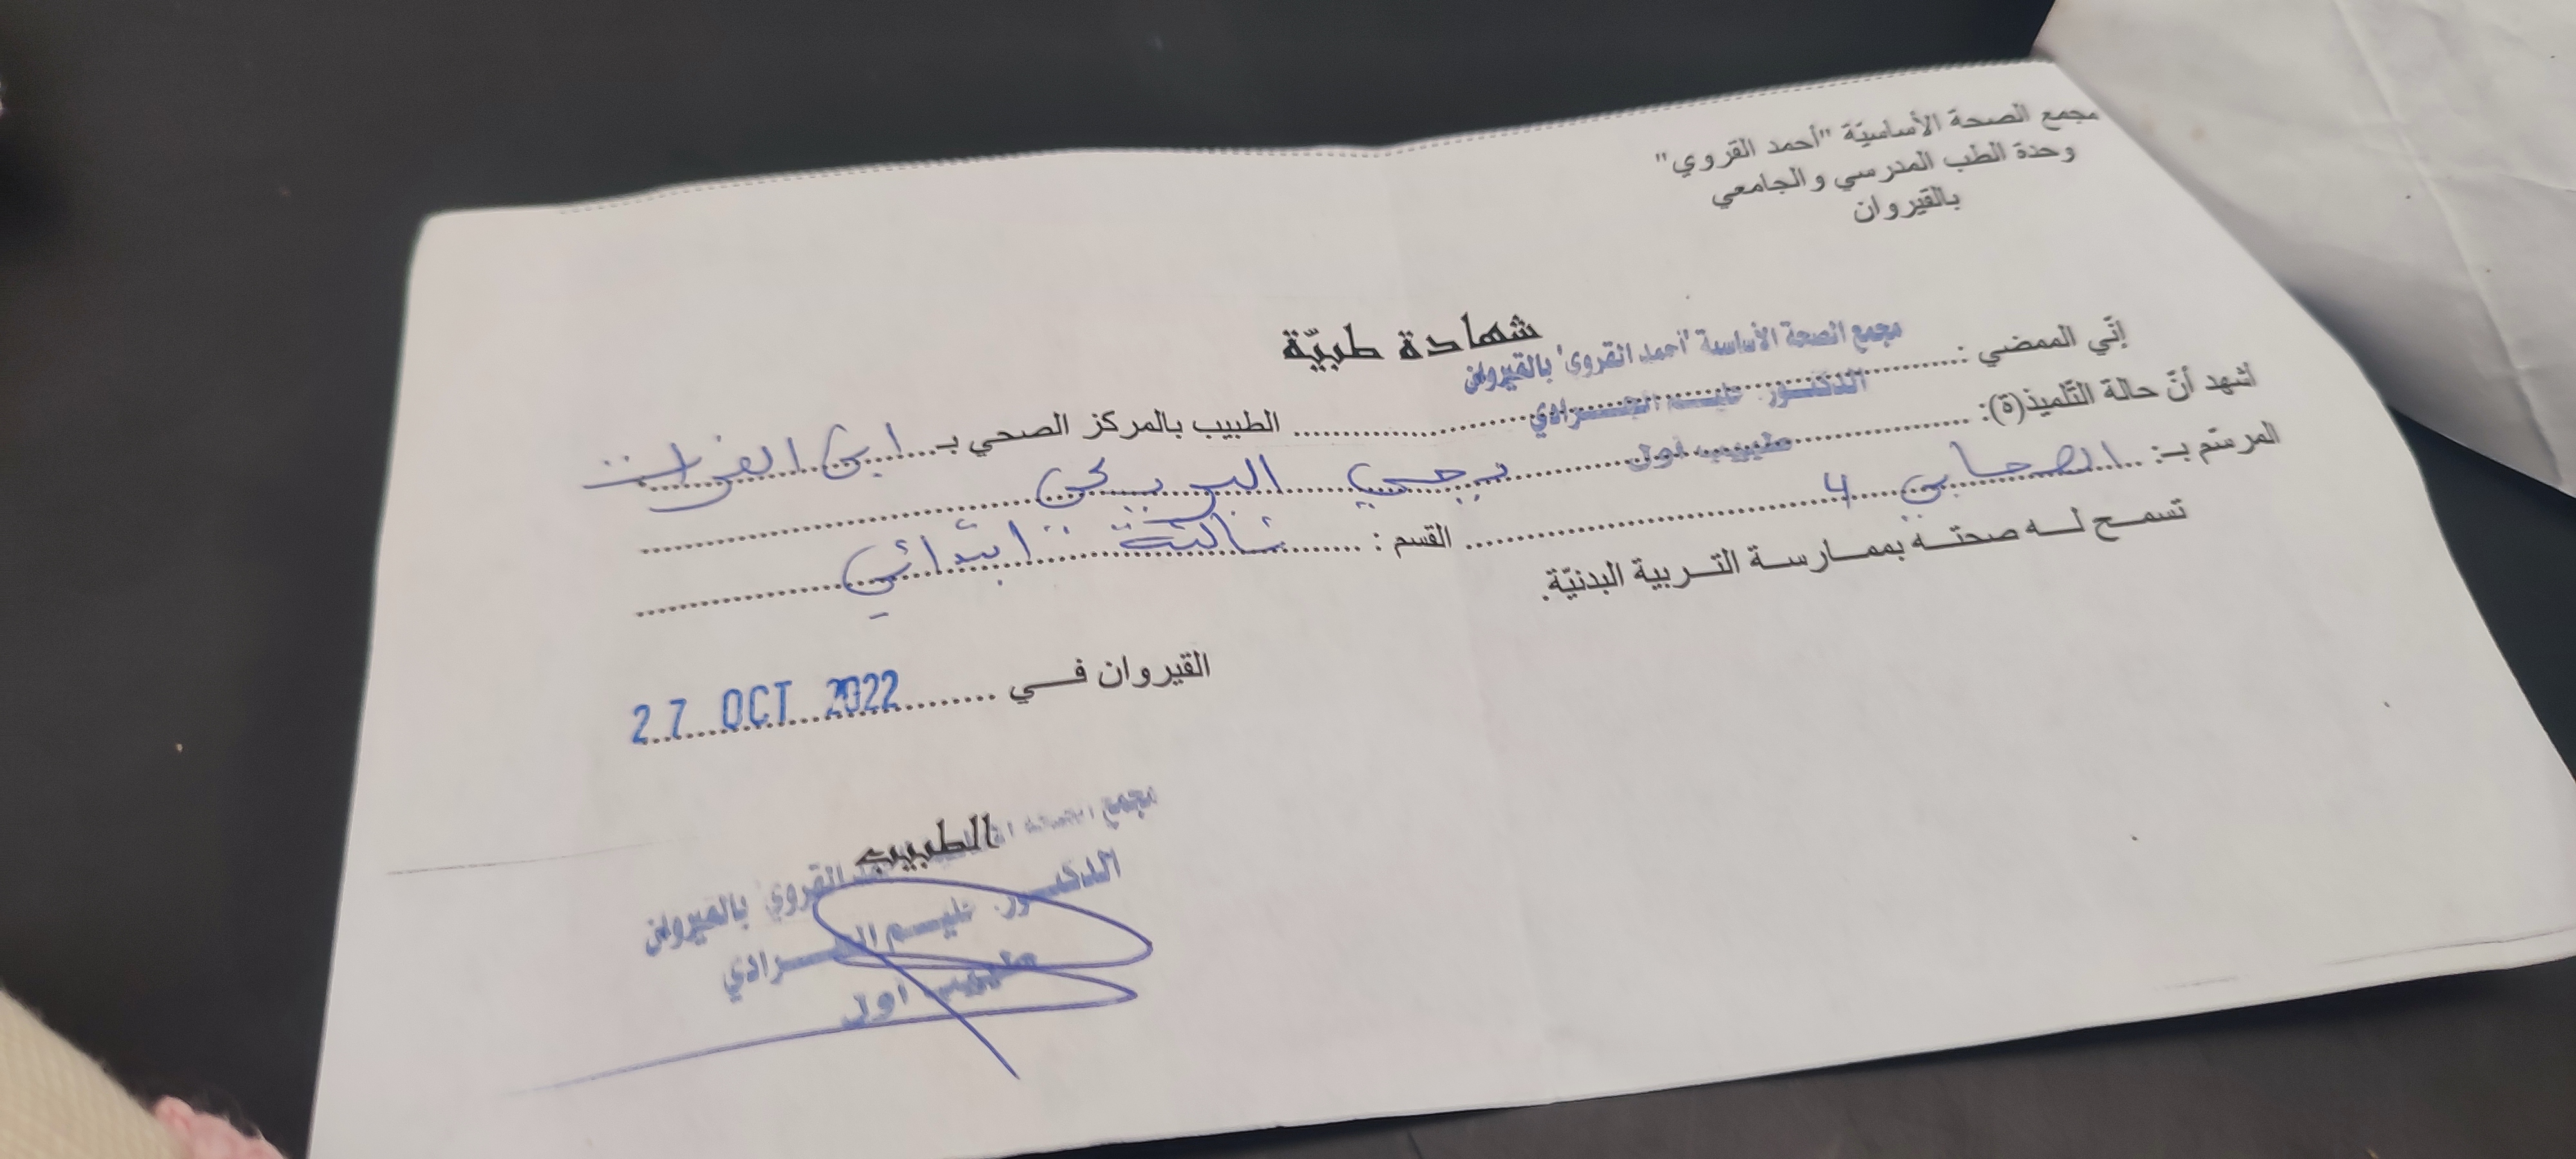 مجمع الصحة الأساسيّة "أحمد القروي"
وحدة الطب المدرسي والجامعي
بالقيروان
شهادة طبيّة
مجمع الصحة الأساسية 'أحمد القروي' بالقيروان
إنّي الممضي : الدكتور
طبيب أول
الطبيب بالمركز الصحي بـ ابن الفرات
أشهد أنّ حالة التّلميذ(ة):
المرسّم بـ: الصحابي 4 القسم : ثالثة ابتدائي
تسمح له صحته بممارسة التربية البدنيّة.
القيروان في 27 OCT 2022
الطبيب
مجمع الصحة القروي بالقيروان
الدكتور
طبيب أول